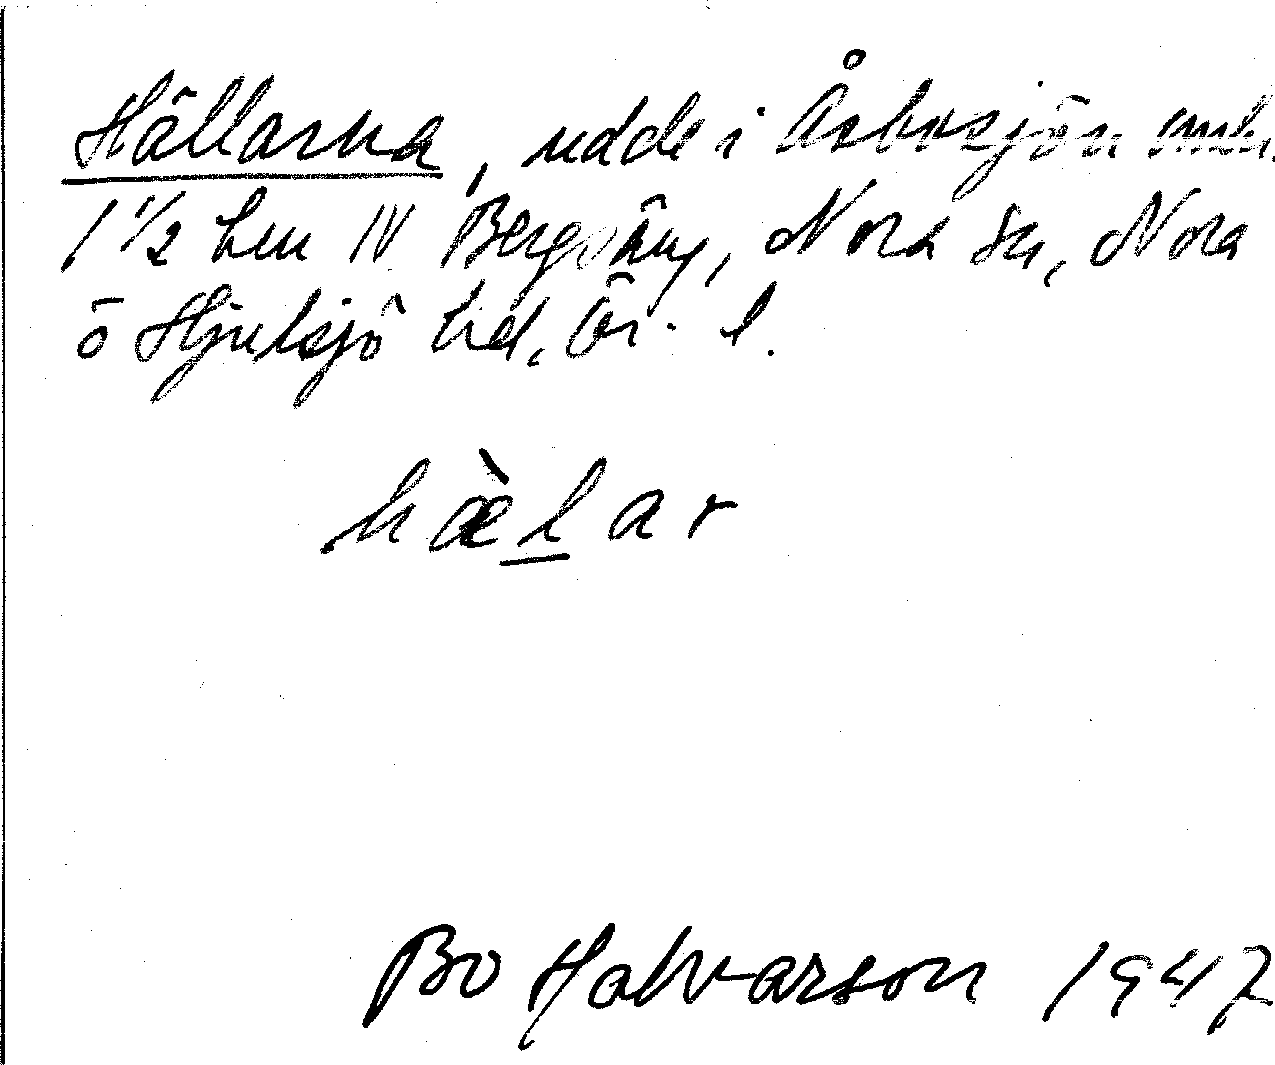 Hällarna, udde i Åsbosjön omkr.
1 1/2 km NV Bergsäng, Nora sn, Nora
o Hjulsjö hd, Ör. l.
hæ̀lar
Bo Halvarson 1947